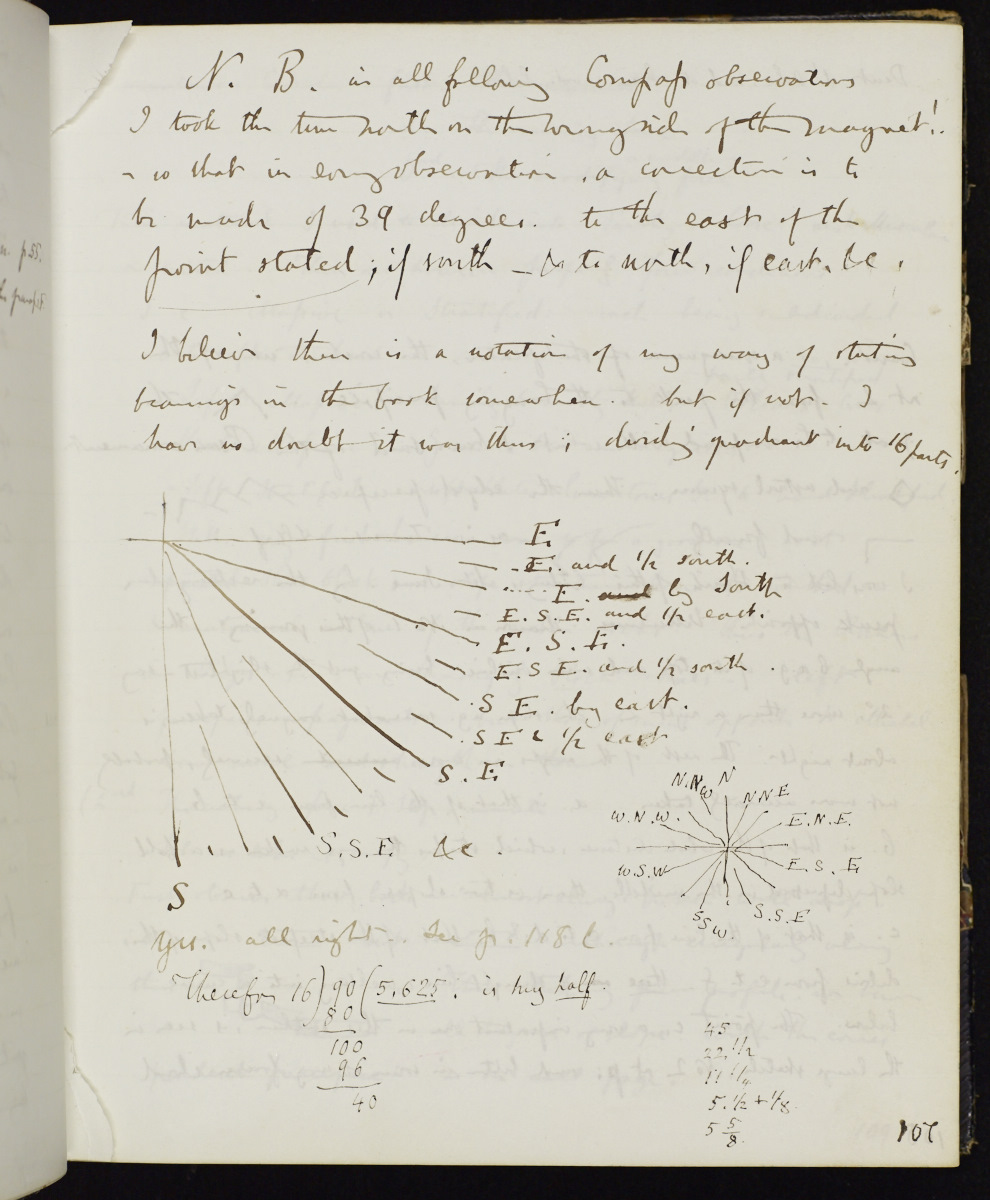 N. B. in all following Compass observations
I took the true north on the wrong side of the magnet!.
- so that in every observation, a correction is to
be made of 39 degrees. to the east of the
point stated; if south – & to north, if east. &c.
I believe there is a notation of my way of stating
bearings in the book somewhere. but if not. I
have no doubt it was thus; dividing quadrant into 16 parts.
E
E. and 1/2 south.
E. and by South
E. S. E. and 1/2 east.
E. S. E.
E. S E. and 1/2 south.
S E. by east.
S E & 1/2 east
S. E
S. S. E &c.
S
N.NW N NNE
W.N.W. E.N.E.
W.S.W E.S.E
SSW. S.S.E
Yes. all right. See p. 118 l.
Therefore 16) 90 (5.625. is my half.
80
100
96
40
45
22.1/2
11 1/4
5.1/2 + 1/8.
5 5/8.
107
p 55.